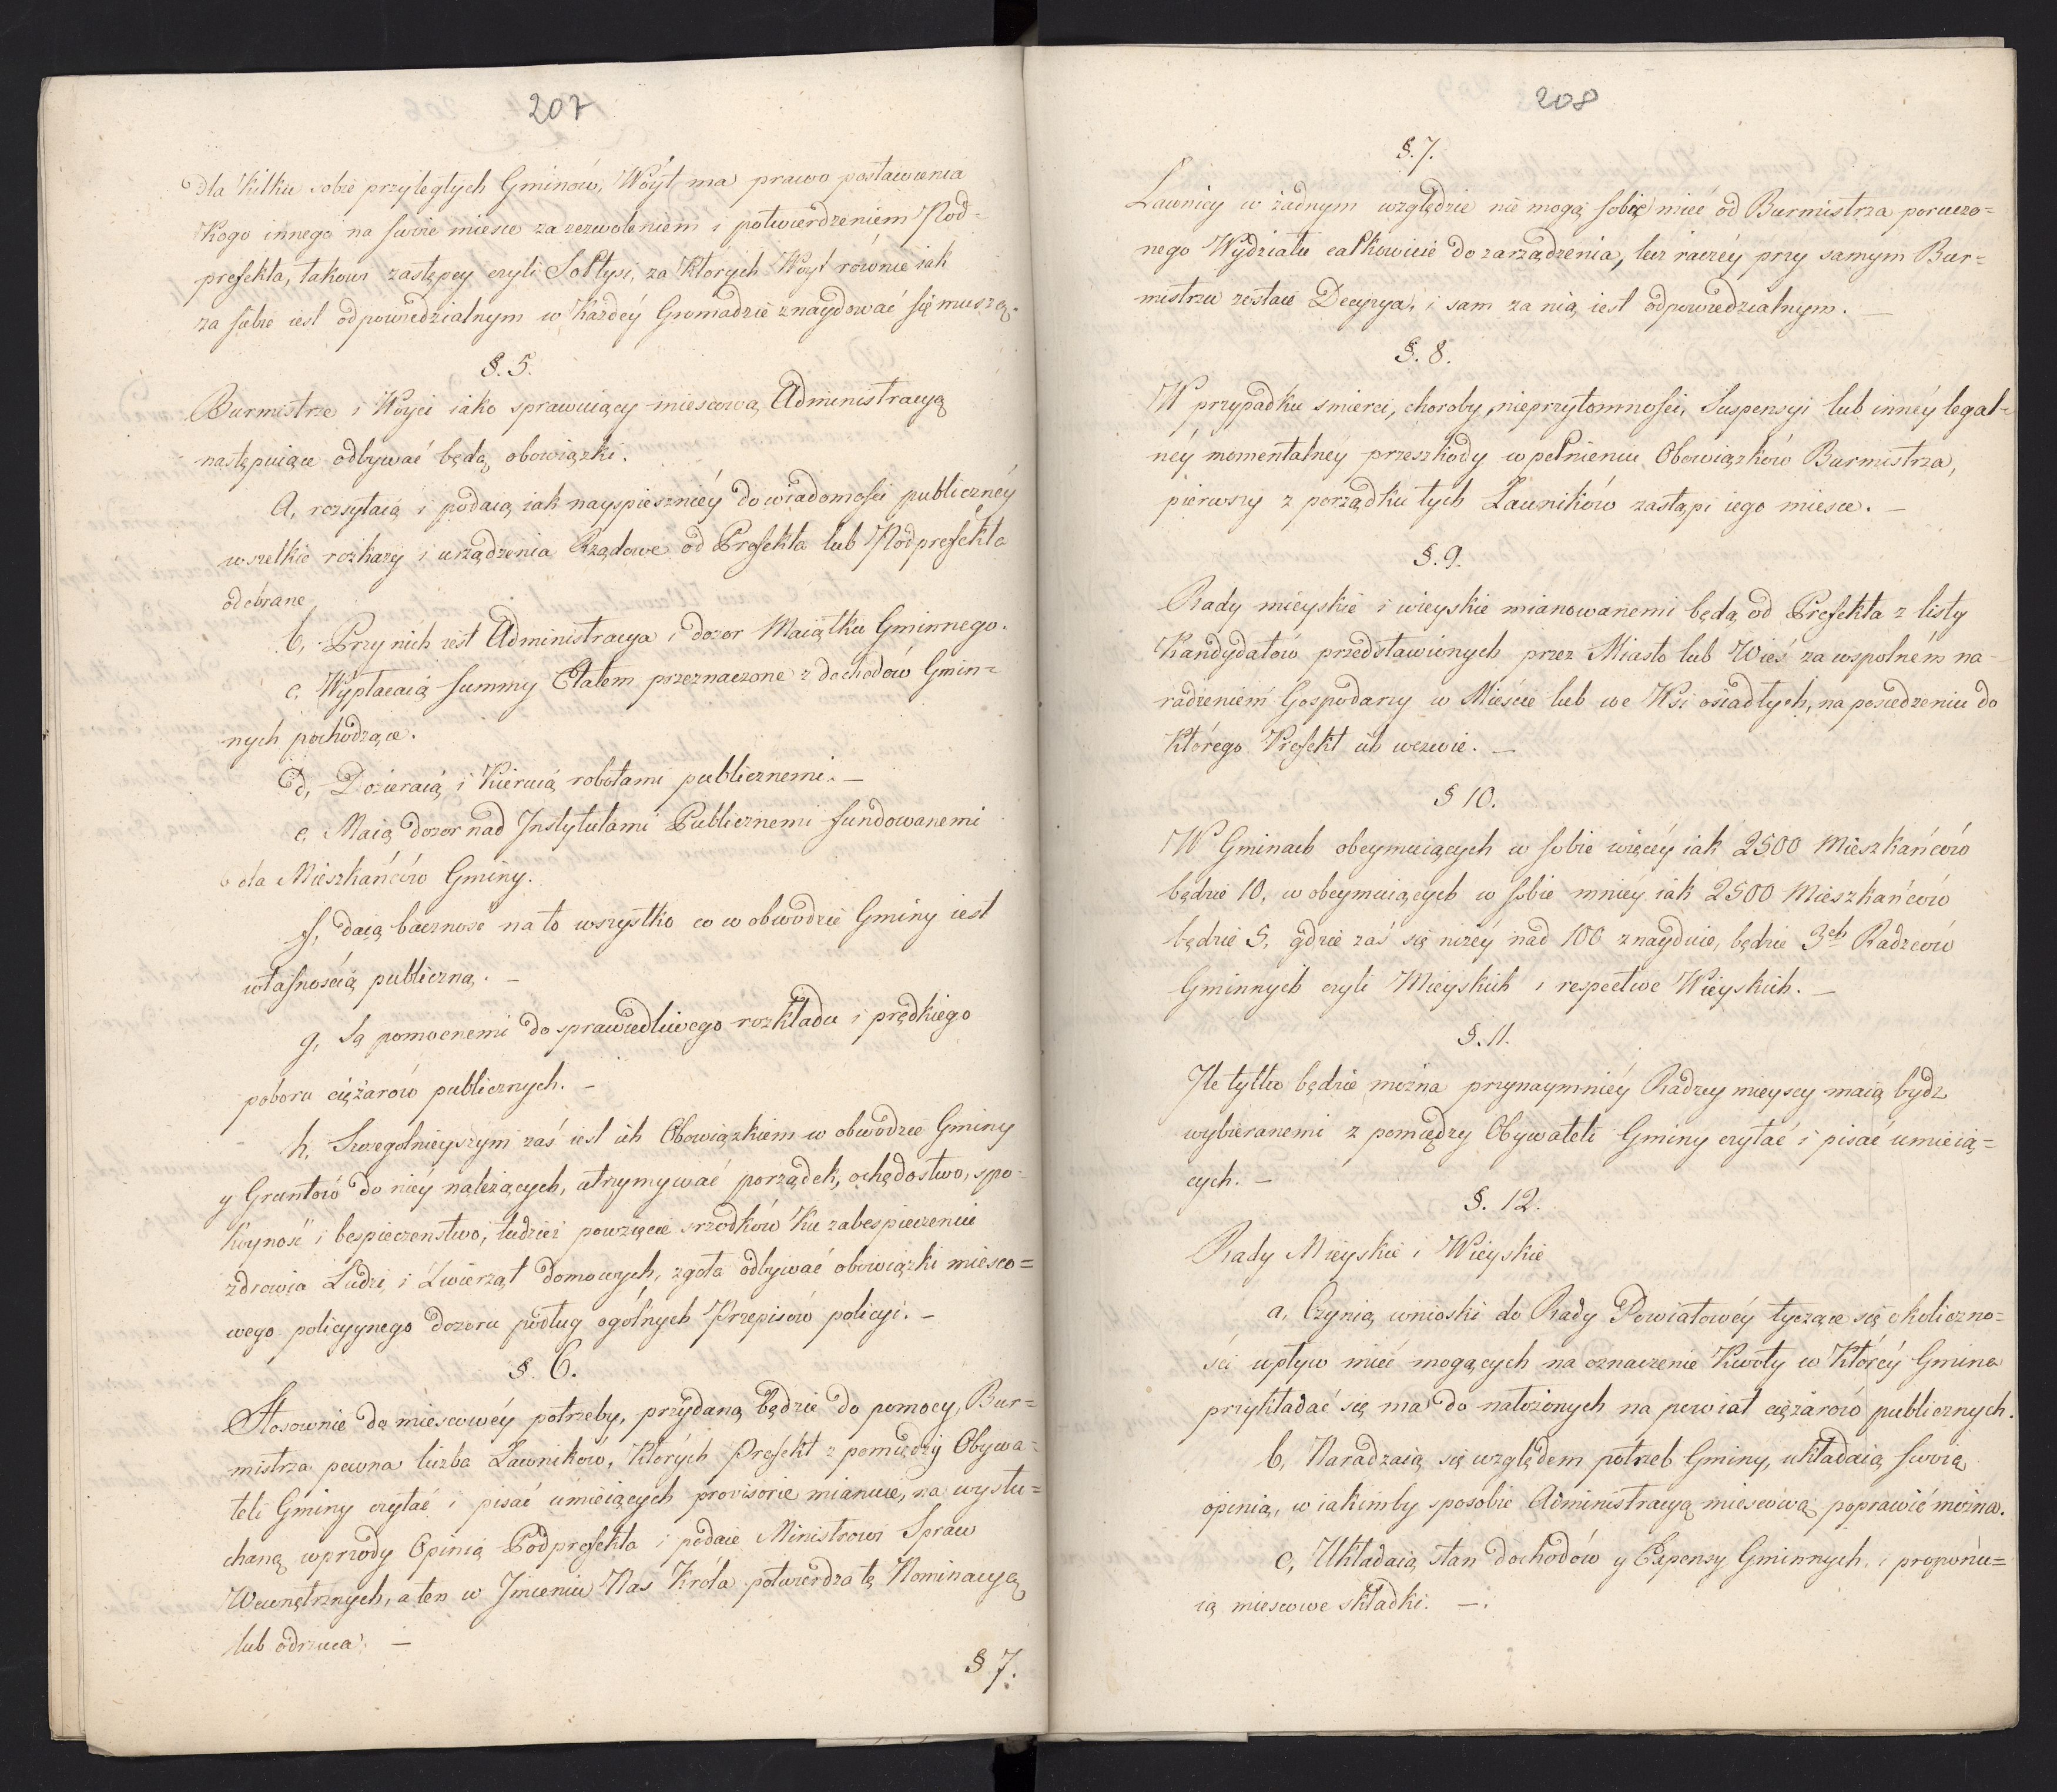 207
dla kilku sobie przyległych Gminów, Wóyt ma prawo postawienia
kogo innego na swoie miesce za zezwoleniem i potwierdzeniem Pod-
prefekta, takowi zastępcy czyli Sołtysi, za których Woyt równie iak
za siebie iest odpowiedzialnym w każdéy Gromadzie znaydować się muszą.
§. 5.
Burmistrze i Woyci iako sprawuiący miescową Administracyą
następuiące odbywać będą obowiązki.
a, rozsyłaią i podaią iak nayspieszniéy do wiadomości publicznéy
wszelkie rozkazy i urządzenia Rządowe od Prefekta lub Podprefekta
odebrane
b, Przy nich iest Administracya i dozor Maiątku Gminnego.
c, Wypłacaią summy Etatem przeznaczone z dochodów Gmin=
nych pochodzące.
d, Dozieraią i kieruią robotami publicznemi. —
e, Maią dozor nad Instytutami Publicznemi fundowanemi
dla Mieszkańców Gminy.
f, daią baczność na to wszystko co w obwodzie Gminy iest
własnością publiczną. —
g, Są pomocnemi do sprawiedliwego rozkładu i prędkiego
poboru ciężarów publicznych. —
h, Szczegolnieyszym zaś iest ich Obowiązkiem w obwodzie Gminy
y Gruntów do niéy należących, utrzymywać porządek, ochędostwo, spo-
koyność i bespieczenstwo, tudzież powzięcie srzodków ku zabespieczeniu
zdrowia Ludzi, i Zwierząt domowych, zgoła odbywać obowiązki miesco=
wego policyynego dozoru podług ogólnych Przepisów policyi. —
§. 6.
Stosownie do miescowéy potrzeby, przydaną będzie do pomocy Bur=
mistrza pewna liczba Ławników, których Prefekt z pomiędzy Obywa=
teli Gminy czytać i pisać umieiących provisorie mianuie, na wysłu=
chaną wprzody Opinią Podprefekta i podaie Ministrowi Spraw
Wewnętrznych, a ten w Jmieniu Nas Króla potwierdza tę Nominacyą
lub odrzuca. —
§ 7.
208
§. 7.
Ławnicy w żadnym względzie nie mogą sobie mieć od Burmistrza poruczo=
nego Wydziału całkowicie do zarządzenia, lecz raczéy przy samym Bur=
mistrzu zostaie Decyzya, i sam za nią iest odpowiedzialnym. —
§. 8.
W przypadku smierci, choroby, nieprzytomności, Suspensyi lub innéy legal=
néy momentalnéy przeszkody w pełnieniu Obowiązków Burmistrza,
pierwszy z porządku tych Ławników zastąpi iego miesce. —
§. 9.
Rady mieyskie i wieyskie mianowanemi będą od Prefekta z listy
Kandydatów przedstawionych przez Miasto lub Wieś za wspolném na-
radzeniem Gospodarzy w Mieście lub we Wsi osiadłych, na posiedzeniu do
którego Prefekt ich wezwie. —
§ 10.
W Gminach obeymuiących w sobie więcéy iak 2500 Mieszkańców
będzie 10, w obeymuiących w sobie mniéy iak 2500 Mieszkańców
będzie 5, gdzie zaś się niżéy nad 100 znayduie, będzie 3ch Radzców
Gminnych czyli Mieyskich i respective Wieyskich. —
§. 11.
Ile tylko będzie można przynaymniéy Radzcy mieyscy maią bydz
wybieranemi z pomiędzy Obywateli Gminy czytać i pisać umieią=
cych. —
§. 12.
Rady Mieyskie i Wieyskie
a, Czynią wnioski do Rady Powiatowéy tyczące się okoliczno=
ści wpływ mieć mogących na oznaczenie kwoty w któréy Gmina
przykładać się ma do nałożonych na powiat ciężarów publicznych.
b, Naradzaią się względem potrzeb Gminy, układaią swoią
opinią, w iakimby sposobie Administracyą miescową poprawić można.
c, Układaią stan dochodów y Expensy Gminnych, i proponu=
ią miescowe składki. —